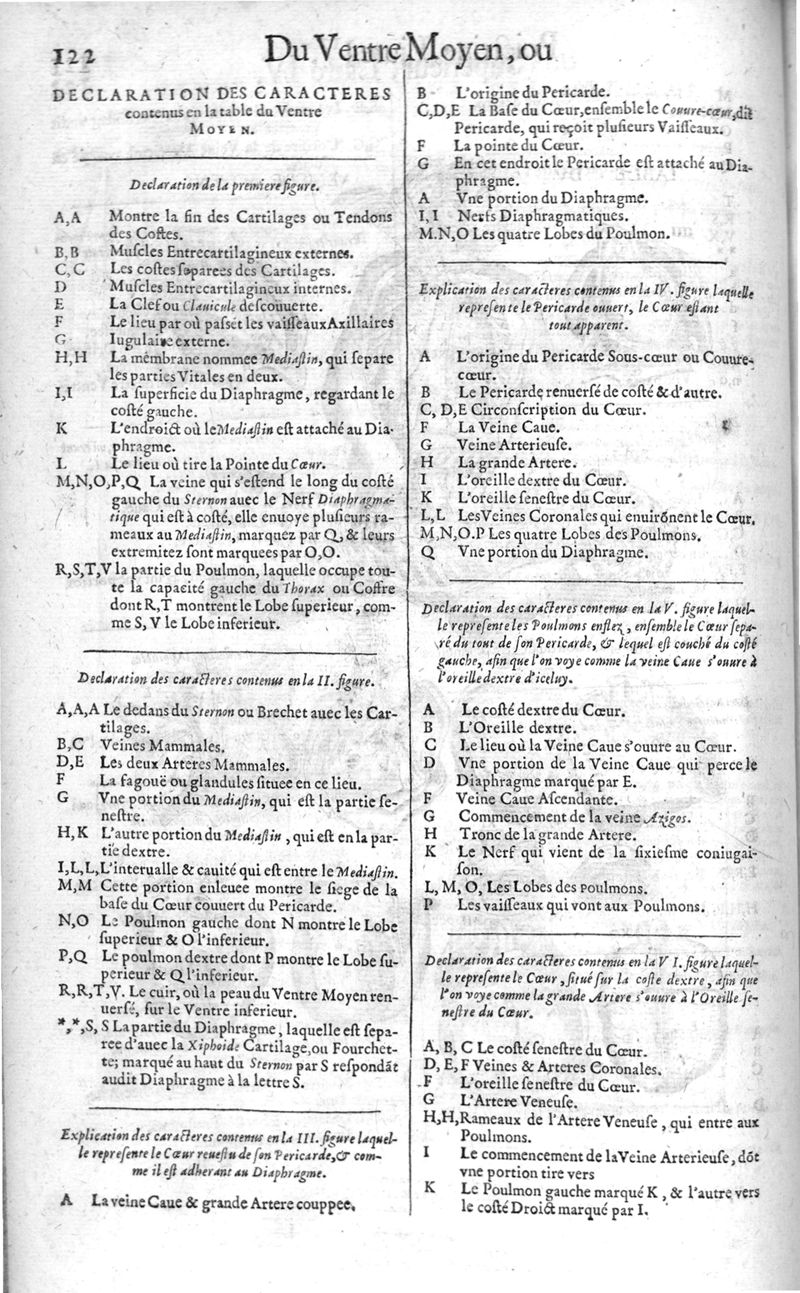 122
Du Ventre Moyen, ou
DECLARATION DES CARACTERES
contenus en la table du Ventre
MOYEN.
Declaration de la premiere figure.
A,A Montre la fin des Cartilages ou Tendons
des Costes.
B,B Muſcles Entrecartilagineux externes.
C,C Les coſtes ſeparees des Cartilages.
D Muſcles Entrecartilagineux internes.
E La Clef ou Clauicule deſcouuerte.
F Le lieu par où paſſẽt les vaiſſeaux Axillaires
G Iugulaire externe.
H,H La membrane nommee Mediaſtin, qui ſepare
les parties Vitales en deux.
I,I La ſuperficie du Diaphragme, regardant le
coſté gauche.
K L'endroict où le Mediaſtin eſt attaché au Dia-
phragme.
L Le lieu où tire la Pointe du Cœur.
M,N,O,P,Q La veine qui s'eſtend le long du coſté
gauche du Sternon auec le Nerf Diaphragma-
tique qui eſt à coſté, elle enuoye pluſieurs ra-
meaux au Mediaſtin, marquez par Q, & leurs
extremitez ſont marquees par O,O.
R,S,T,V la partie du Poulmon, laquelle occupe tou-
te la capacité gauche du Thorax ou Coffre
dont R,T montrent le Lobe ſuperieur, com-
me S, V le Lobe inferieur.
Declaration des caracteres contenus en la II. figure.
A,A,A Le dedans du Sternon ou Brechet auec les Car-
tilages.
B,C Veines Mammales.
D,E Les deux Arteres Mammales.
F La fagouë ou glandules ſituee en ce lieu.
G Vne portion du Mediaſtin, qui eſt la partie ſe-
neſtre.
H,K L'autre portion du Mediaſtin, qui eſt en la par-
tie dextre.
I,L,L,L'interualle & cauité qui eſt entre le Mediaſtin.
M,M Cette portion enleuee montre le ſiege de la
baſe du Cœur couuert du Pericarde.
N,O Le Poulmon gauche dont N montre le Lobe
ſuperieur & O l'inferieur.
P,Q Le poulmon dextre dont P montre le Lobe ſu-
perieur & Q l'inferieur.
R,R,T,V. Le cuir, où la peau du Ventre Moyen ren-
uerſé, ſur le Ventre inferieur.
*,*,S, S La partie du Diaphragme, laquelle eſt ſepa-
ree d'auec la Xiphoide Cartilage,ou Fourchet-
te; marqué au haut du Sternon par S reſpondãt
audit Diaphragme à la lettre S.
Explication des caracteres contenus en la III. figure laquel-
le repreſente le Cœur reueſtu de ſon Pericarde,& com-
me il eſt adherant au Diaphragme.
A La veine Caue & grande Artere couppee,
B L'origine du Pericarde.
C,D,E La Baſe du Cœur,enſemble le Couure-cœur,dit
Pericarde, qui reçoit pluſieurs Vaiſſeaux.
F La pointe du Cœur.
G En cet endroit le Pericarde eſt attaché au Dia-
phragme.
A Vne portion du Diaphragme.
I,I Nerfs Diaphragmatiques.
M.N,O Les quatre Lobes du Poulmon.
Explication des caracteres contenus en la IV. figure laquelle
repreſente le Pericarde ouuert, le Cœur eſtant
tout apparent.
A L'origine du Pericarde Sous-cœur ou Couure-
cœur.
B Le Pericarde renuerſé de coſté & d'autre.
C, D,E Circonſcription du Cœur.
F La Veine Caue.
G Veine Arterieuſe.
H La grande Artere.
I L'oreille dextre du Cœur.
K L'oreille ſeneſtre du Cœur.
L,L Les Veines Coronales qui enuirõnent le Cœur.
M,N,O.P Les quatre Lobes des Poulmons.
Q Vne portion du Diaphragme.
Declaration des caracteres contenus en la V. figure laquel-
le repreſente les Poulmons enflez, enſemble le Cœur ſepa-
ré du tout de ſon Pericarde, & lequel eſt couché du coſté
gauche, afin que l'on voye comme la veine Caue s'ouure à
l'oreille dextre d'iceluy.
A Le coſté dextre du Cœur.
B L'Oreille dextre.
C Le lieu où la Veine Caue s'ouure au Cœur.
D Vne portion de la Veine Caue qui perce le
Diaphragme marqué par E.
F Veine Caue Aſcendante.
G Commencement de la veine Azigos.
H Tronc de la grande Artere.
K Le Nerf qui vient de la ſixieſme coniugai-
ſon.
L, M, O, Les Lobes des poulmons.
P Les vaiſſeaux qui vont aux Poulmons.
Declaration des caracteres contenus en la V I. figure laquel-
le repreſente le Cœur, ſitué ſur la coſte dextre, afin que
l'on voye comme la grande Artere s'ouure à l'Oreille ſe-
neſtre du Cœur.
A, B, C Le coſté ſeneſtre du Cœur.
D, E, F Veines & Arteres Coronales.
F L'oreille ſeneſtre du Cœur.
G L'Artere Veneuſe.
H,H,Rameaux de l'Artere Veneuſe, qui entre aux
Poulmons.
I Le commencement de la Veine Arterieuſe, dõt
vne portion tire vers
K Le Poulmon gauche marqué K, & l'autre vers
le coſté Droict marqué par I.